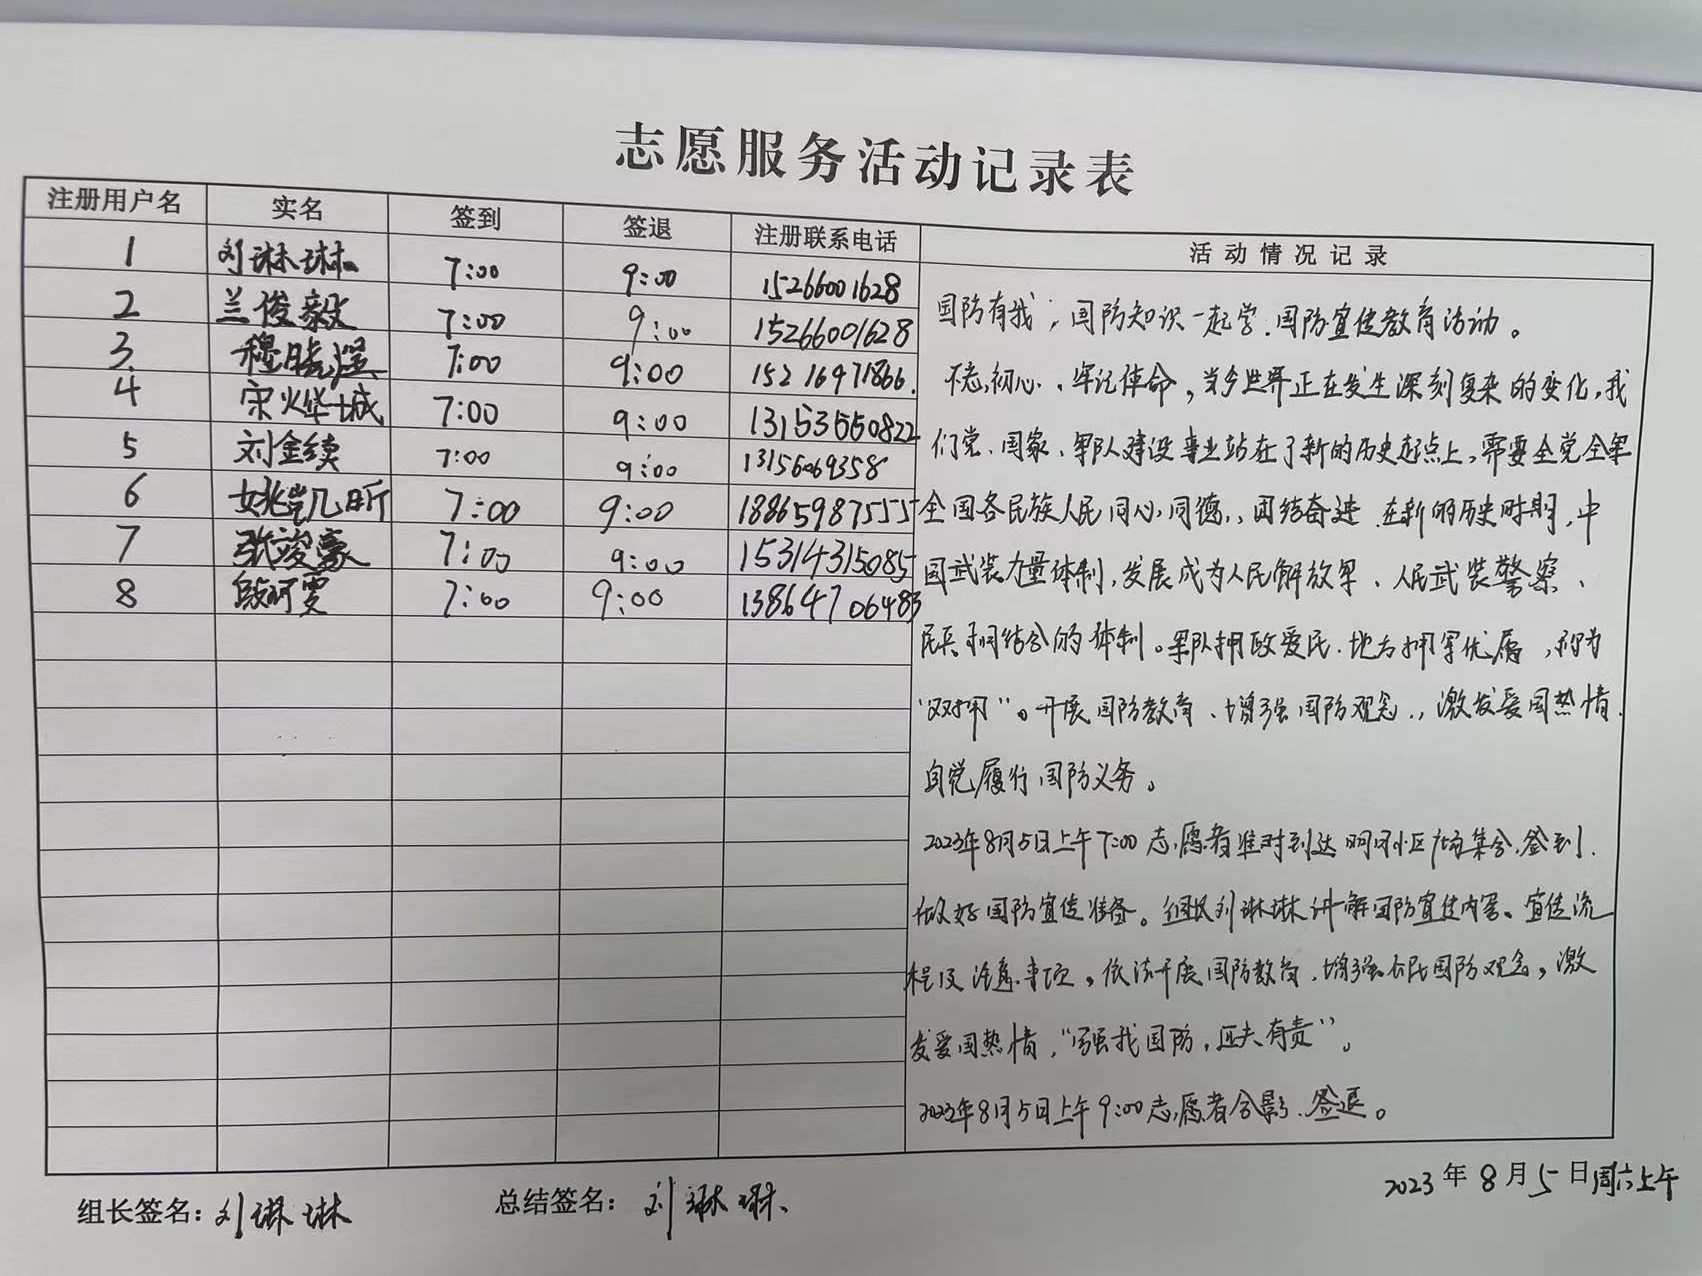 志愿服务活动记录表
注册用户名 实名 签到 签退 注册联系电话 活动情况记录
1 刘琳琳 7:00 9:00 15266001628
2 兰俊毅 7:00 9:00 15266001628
3. 穆 7:00 9:00 15216971866.
4 宋烨城 7:00 9:00 13153550822
5 刘金续 7:00 9:00 13156069358
6 姚凯昕 7:00 9:00 18865987555
7 张竣豪 7:00 9:00 15314315085
8 段珂雯 7:00 9:00 13864706483
国防有我;国防知识一起学.国防宣传教育活动。
不忘初心、牢记使命,当今世界正在发生深刻复杂的变化,我
们党、国家、军队建设事业站在了新的历史起点上,需要全党全军
全国各民族人民同心同德,团结奋进.在新的历史时期,中
国武装力量体制,发展成为人民解放军、人民武装警察、
民兵相结合的体制。军队拥政爱民.地方拥军优属,称为
“双拥”。开展国防教育、增强国防观念,激发爱国热情.
自觉履行国防义务。
2023年8月5日上午7:00志愿者准时到达明珠小区广场集合,签到.
做好国防宣传准备。组长刘琳琳讲解国防宣传内容、宣传流
程及注意事项,依法开展国防教育,增强公民国防观念,激
发爱国热情,“强我国防,匹夫有责”。
2023年8月5日上午9:00志愿者合影.签退。
组长签名:刘琳琳 总结签名:刘琳琳 2023年8月5日周六上午